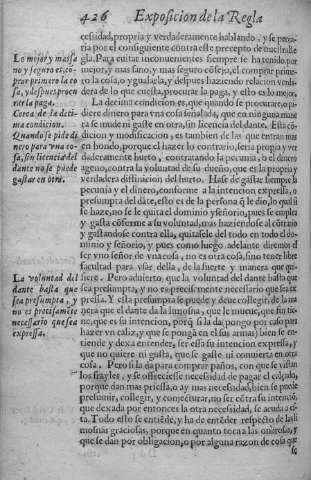 426 Exposicion de la Regla
cessidad, propria y verdaderamente hablando, y se pecaria
por el consiguiente contra este precepto de nuestra Re
gla. Para euitar inconuenientes siempre se ha tenido por
mejor, y mas sano, y mas seguro cõsejo, el comprar prime-
ro la cosa, o ygualarla, y despues hazer relacion verda-
dera de lo que cuesta, procurar la paga, y esto es lo mejor.
La decima condicion es, que quando se procurare, o pi-
diere dinero para vna cosa señalada, que en ninguna mane
ra se mude ni gaste en otra, sin licencia del dante. Esta cõ-
dicion y modificacion, es tambien de las que entran mas
en hondo, porque el hazer lo contrario, seria propria y ver
daderamente hurto, contratando la pecunia, o el dinero
ageno, contra la voluntad de su dueño, que es la propria y
verdadera difinicion del hurto. Hase de gastar siempre la
pecunia y el dinero, conforme a la intencion expressa, o
presumpta del dãte, esto es de la persona q̃ le dio, lo qual si
se haze, no se le quita el dominio y señorio, pues se emplea
y gasta cõforme a su voluntad, mas haziendose al cõtrario
y gastandose contra ella, quitasele del todo en todo el do-
minio y señorio, y pues como luego adelante diremos el
ser vno señor de vna cosa, no es otra cosa, sino tener libre
facultad para vsar della, de la suerte y manera que qui-
siere. Pero aduierto, que la voluntad del dante basta que
sea presumpta, y no es precissamente necessario que sea ex
pressa. Y esta presumpta se puede y deue collegir, de la ma
nera que el que da la limosna, que le mueue, que fin tie-
ne, que es su intencion, porq̃ si la da pongo por caso para
hazer vn caliz, y que se pongã en el sus armas) bien se en-
tiende y dexa entender, ser essa su intencion expressa, y
que no quiere ni gusta, que se gaste ni conuierta en otra
cosa. Pero si la da para comprar paños, con que se vistan
los frayles, y se offreciesse necessidad de pagar el calçado,
porque dan mas priessa, o ay mas necessidad, bien se puede
presumir, collegir, y conjecturar, no ser cõtra su intenciõ,
que dexada por entonces la otra necessidad, se acuda a es-
ta. Todo esto se entiẽde, y ha de entẽder respecto de las li
mosnas graciosas, porque en quanto toca a las onerosas, y
que se dan por obligacion, o por alguna razon de cosa que
se
Lo mejor y mas sa
no y seguro es, cõ-
prar primero la co
sa, y despues procu
rar la paga.
Cerca de la deci
ma condicion.
Quando se pide di
nero para vna co-
sa, sin licencia del
dante no se puede
gastar en otra.
La voluntad del
dante basta que
sea presumpta, y
no es precisamẽte
necessario que sea
expressa.